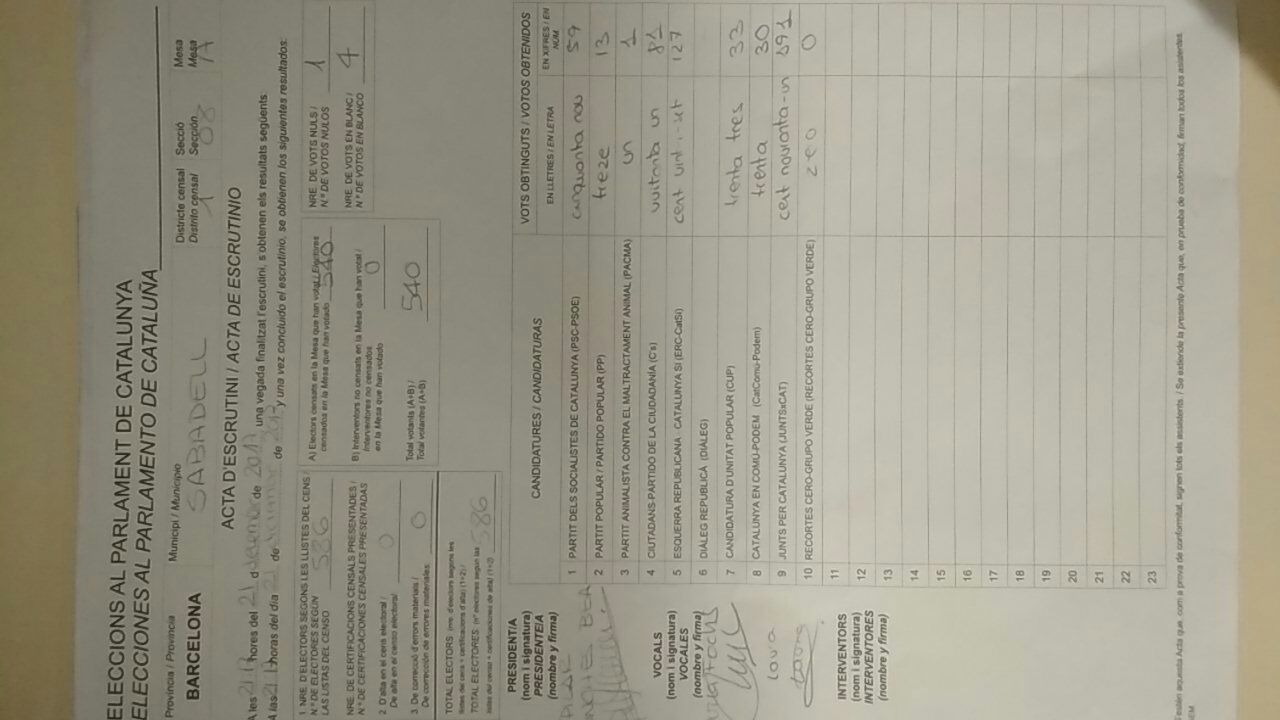 ELECCIONS AL PARLAMENT DE CATALUNYA
ELECCIONES AL PARLAMENTO DE CATALUÑA
Província / Provincia
Municipi / Municipio
Districte censal
Distrito censal
Secció
Sección
Mesa
Mesa
BARCELONA
SABADELL
1
08
A
ACTA D'ESCRUTINI / ACTA DE ESCRUTINIO
A les 21 hores del 21 d desembre de 2017 una vegada finalitzat l'escrutini, s'obtenen els resultats següents
A las 21 horas del día 21 de de y una vez concluido el escrutinio, se obtienen los siguientes resultados:
1 NRE. D'ELECTORS SEGONS LES LLISTES DEL CENS /
N.º DE ELECTORES SEGÚN
LAS LISTAS DEL CENSO 586
NRE. DE CERTIFICACIONS CENSALS PRESENTADES /
N.º DE CERTIFICACIONES CENSALES PRESENTADAS
2 D'alta en el cens electoral /
De alta en el censo electoral 0
3. De correcció d'errors materials /
De corrección de errores materiales 0
TOTAL ELECTORS (nre. d'electors segons les
llistes del cens + certificacions d'alta) (1+2) /
TOTAL ELECTORES (nº electores según las
listas del censo + certificaciones de alta) (1+2) 586
A) Electors censats en la Mesa que han votat / Electores
censados en la Mesa que han votado 540
B) Interventors no censats en la Mesa que han votat /
Interventores no censados
en la Mesa que han votado 0
Total votants (A+B) /
Total votantes (A+B) 540
NRE. DE VOTS NULS /
N.º DE VOTOS NULOS 1
NRE. DE VOTS EN BLANC /
N.º DE VOTOS EN BLANCO 4
CANDIDATURES / CANDIDATURAS
VOTS OBTINGUTS / VOTOS OBTENIDOS
EN LLETRES / EN LETRA
EN XIFRES / EN NÚM
1 PARTIT DELS SOCIALISTES DE CATALUNYA (PSC-PSOE) cinquanta nou 59
2 PARTIT POPULAR / PARTIDO POPULAR (PP) treze 13
3 PARTIT ANIMALISTA CONTRA EL MALTRACTAMENT ANIMAL (PACMA) un 1
4 CIUTADANS-PARTIDO DE LA CIUDADANÍA (C's) vuitanta un 81
5 ESQUERRA REPUBLICANA - CATALUNYA SÍ (ERC-CatSí) cent vint-i-set 127
6 DIÀLEG REPUBLICÀ (DIÀLEG)
7 CANDIDATURA D'UNITAT POPULAR (CUP) trenta tres 33
8 CATALUNYA EN COMÚ-PODEM (CatComú-Podem) trenta 30
9 JUNTS PER CATALUNYA (JUNTSxCAT) cent novanta-un 191
10 RECORTES CERO-GRUPO VERDE (RECORTES CERO-GRUPO VERDE) zero 0
11
12
13
14
15
16
17
18
19
20
21
22
23
PRESIDENT/A
(nom i signatura)
PRESIDENTE/A
(nombre y firma)
VOCALS
(nom i signatura)
VOCALES
(nombre y firma)
INTERVENTORS
(nom i signatura)
INTERVENTORES
(nombre y firma)
estén aquesta Acta que, com a prova de conformitat, signen tots els assistents. / Se extiende la presente Acta que, en prueba de conformidad, firman todos los asistentes